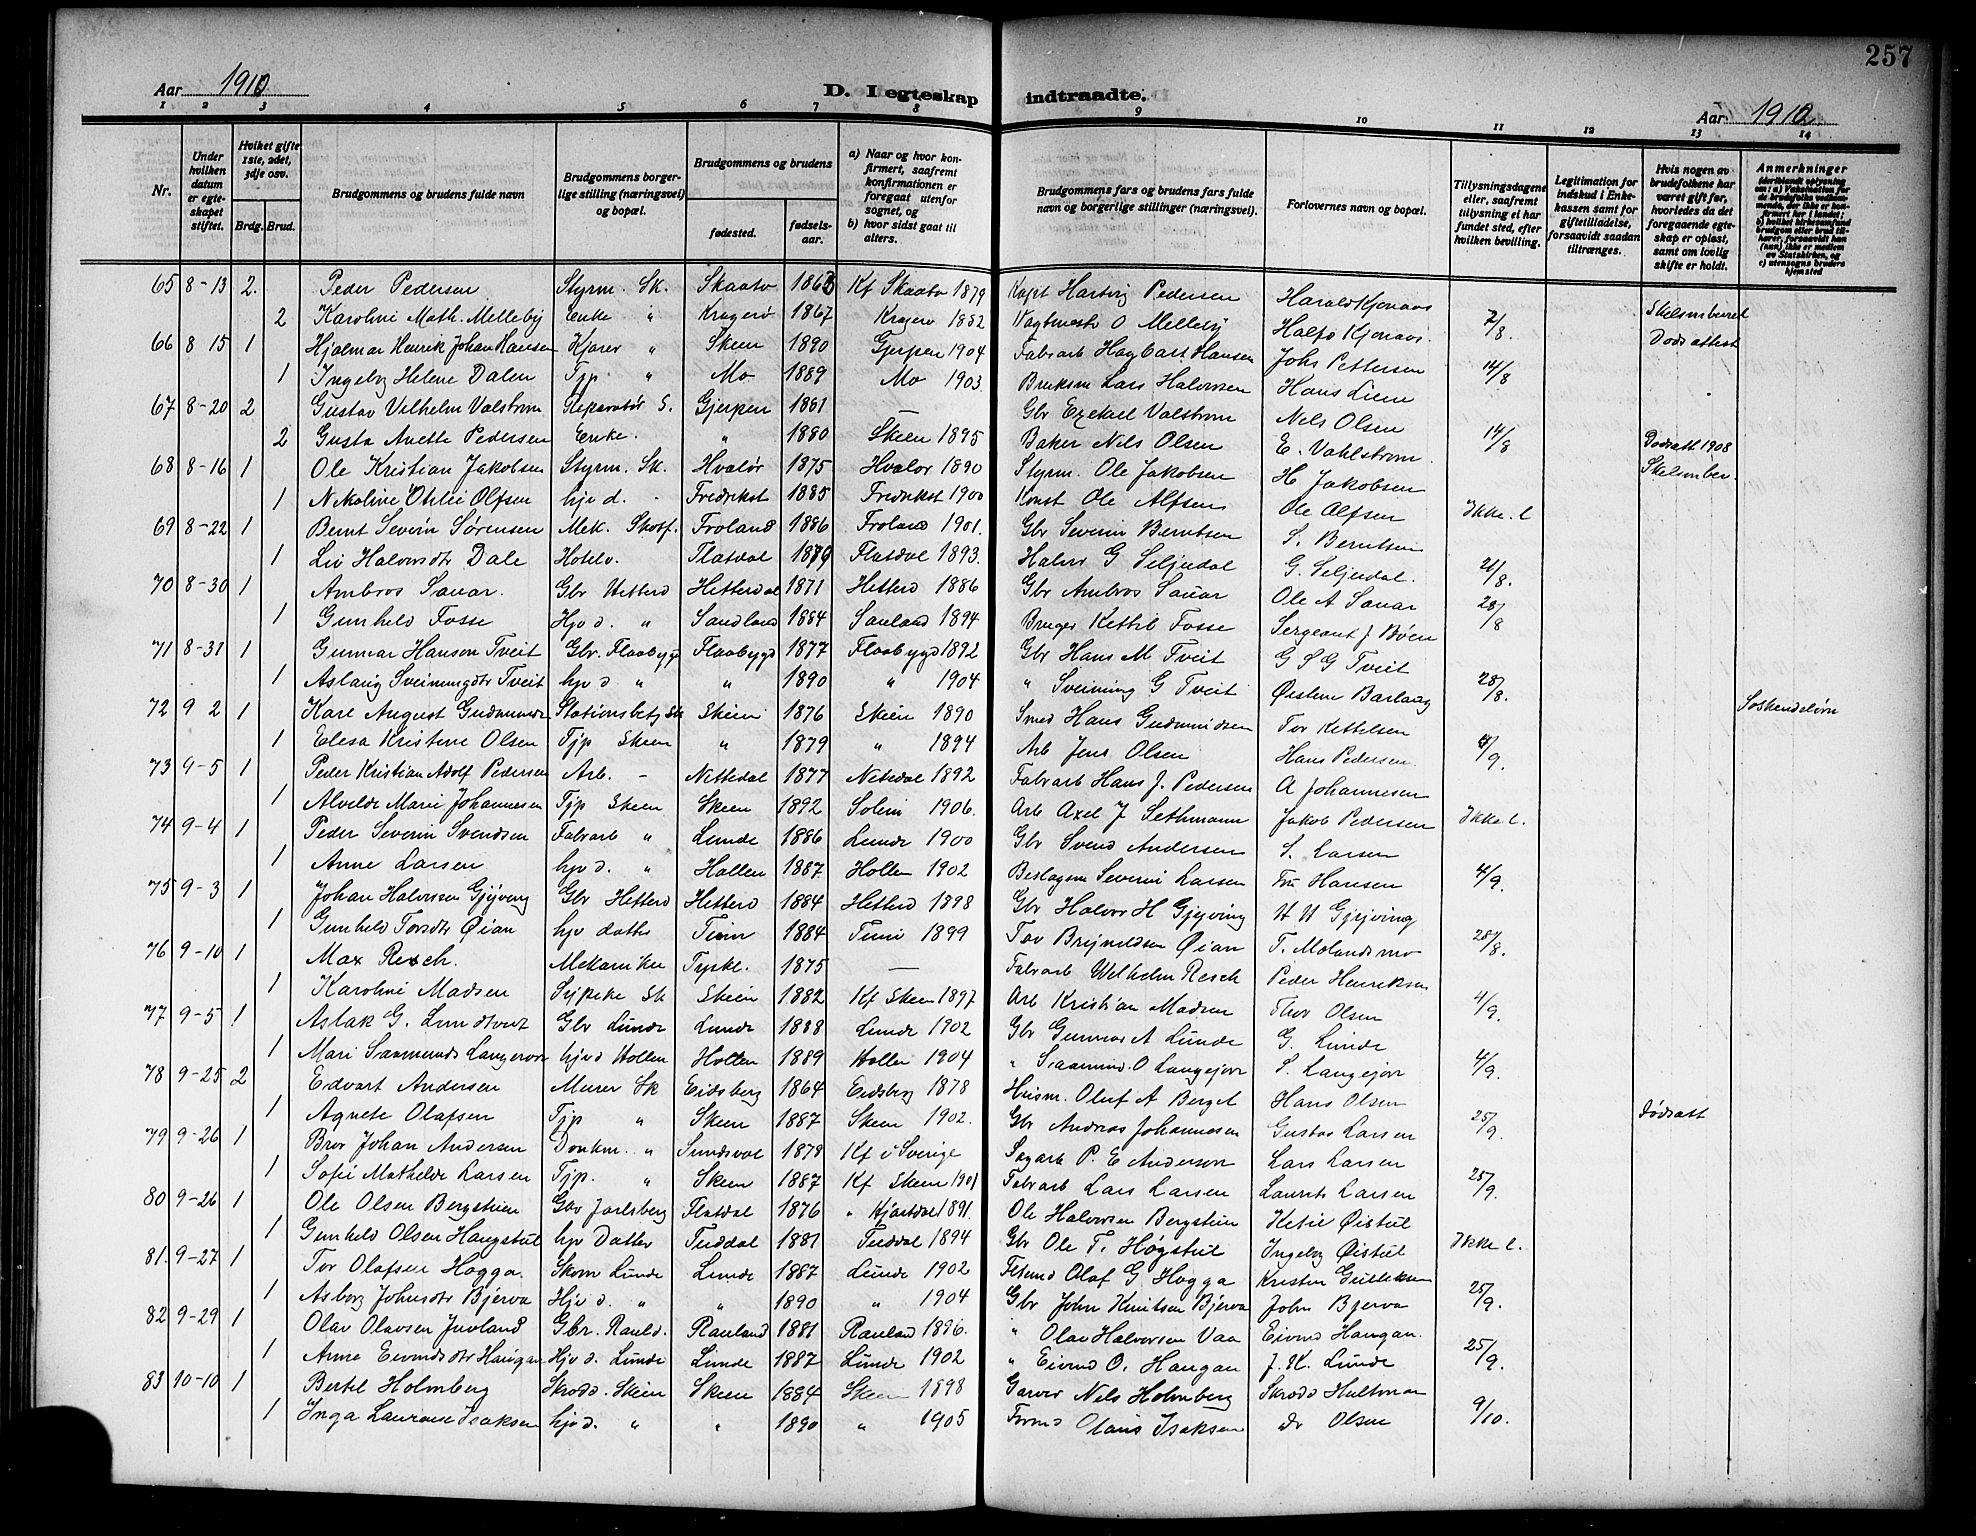 257
Aar 1910. D. I egteskap indtraadte. Aar 1910.
1 2 3 4 5 6 7 8 9 10 11 12 13 14
Nr.
Under hvilken datum er egteskapet stiftet.
Hvilket gifte 1ste, 2det, 3dje osv.
Brdg. Brud.
Brudgommens og brudens fulde navn
Brudgommens borgerlige stilling (næringsvei) og bopæl.
Brudgommens og brudens
fødested. fødselsaar.
a) Naar og hvor konfirmert, saafremt konfirmationen er foregaat utenfor sognet, og
b) hvor sidst gaat til alters.
Brudgommens fars og brudens fars fulde navn og borgerlige stillinger (næringsvei).
Forlovernes navn og bopæl.
Tillysningsdagene eller, saafremt tillysning ei har fundet sted, efter hvilken bevilling.
Legitimation for indskud i Enkekassen samt for giftetilladelse, forsaavidt saadan tiltrænges.
Hvis nogen av brudefolkene har været gift før, hvorledes da det foregaaende egteskap er opløst, samt om lovlig skifte er holdt.
Anmerkninger
65 8-13 2. Peder Pedersen Styrm. Sk. Skaatø 1863 Kf Skaatø 1879 Kapt Hartvig Pedersen Harald Kjønaas
2 Karoline Math. Melleby Enke " Kragerø 1867 Kragerø 1882 Vagtmestr O Melleby Halfo Kjonaas. 7/8. Skelsmbevel
66 8 15 1 Hjalmar Henrik Johan Hansen Kjører " Skeen 1890 Gjerpen 1904 Fabrarb Hagbart Hansen Johs Pettersen Dødsattest
1 Ingeborg Helene Dalen Tjp. " Mo 1889 Mo 1903. Bruksm Lars Halvorsen Hans Liem 14/8
67 8-20 2 Gustav Vilhelm Valstrøm Reparatør S. Gjerpen 1861 — Gbr Ezekael Valstrøm Nels Olsen
2 Gusta Anette Pedersen Enke. " 1880 Skeen 1895 Baker Nils Olsen E. Vahlstrøm. 14/8 Dødsatt 1908
68 8-16 1 Ole Kristian Jakobsen Styrm. Sk. Hvalør 1875 Hvaler 1890 Styrm. Ole Jakobsen H Jakobsen Skelsmbev.
1 Nikoline Otilie Olfsen hjv d. - Fredrikst 1885 Fredrikst 1900 Konst Ole Alfsen Ole Olfsen Ikke. l
69 8-22 1 Bernt Severin Sørensen Mek. Skotf. Froland 1886 Froland 1901. Gbr Severin Berntsen S. Berntsen
1 Liv Halvorsdtr Dale Hotelv. Flatdal 1879 Flatdal 1893. Halvor G Seljedal G. Seljedal. 21/8.
70 8-30 1 Ambros Sauar. Gbr Hetterd Hetterdal 1871 Hetterd 1886 Gbr Ambros Sauar Ole A Sauar
1 Gunhild Fosse Hjv d. " Sandland 1884 Sauland 1894 Bruger Kettil Fosse Sergeant J Bøen 28/8
71 8-31 1 Gunnar Hansen Tveit Gbr. Flaabygd Flaabygd 1877 Flaabygd 1892 Gbr Hans M Tveit G S G Tveit
1 Aslaug Sveinungdtr Tveit hjv d " " 1890 " 1904 " Sveinung G Tveit Øistein Barlaug 28/8.
72 9 2 1 Karl August Gudmunds Stationsbetj Sk Skein 1876 Skein 1890 Smed Hans Gudmundsen Tor Kettelsen Søskendebørn
1 Elesa Kristine Olsen Tjp Skeen " 1879 " 1894 Arb Jens Olsen Hans Pedersen. 4/9.
73 9-5 1 Peder Kristian Adolf Pedersen Arb. - Nittedal 1877 Nitedal 1892 Fabrarb Hans J. Pedersen A Johannesen
1 Alvilde Marie Johannesen Tjp Skeen Skeen 1892 Solum 1906. Arb Axel J Sethmann Jakob Pedersen Ikke l.
74 9-4 1 Peder Severin Svendsen Fabrarb " Lunde 1886 Lunde 1900 Gbr Svend Andersen S. Larsen
1 Anne Larsen hjv d. " Hollen 1887 Hollen 1902 Beslagsm Severin Larsen Fru Hansen 4/9.
75 9-3 1 Johan Halvorsen Gjyving Gbr Hetterd Hetterd 1884 Hetterd 1898 Gbr Halvor H Gjyving H H Gjyving
1 Gunhild Torsdtr Øian hjv datter Tinn 1884 Tinn 1899 Tov Brynildsen Øian T. Molandsmo 28/8.
76 9-10 1 Max Resch. Mekaniker Tyskl. 1875 — Fabrarb Wilhelm Resch Peder Henriksen
1 Karoline Madsen Sypike Sk Skein 1882 Kf Skeen 1897 Arb Kristian Madsen Thor Olsen 4/9.
77 9-5 1 Aslak G. Lundtveit Gbr Lunde Lunde 1888 Lunde 1902 Gbr Gunnar A Lunde G. Lunde
1 Mari Saamunds Langejorr hjv d Hollen Hollen 1889 Hollen 1904 " Saamund O Langejorr S. Langejorr 4/9.
78 9-25 2 Edvart Andersen Murer Sk Eidsberg 1864 Eidsberg 1878 Husm. Oluf A Berget Hans Olsen
1 Agnete Olafsen Tjp " Skeen 1887 Skeen 1902. Gbr Andreas Johannesen Gustav Larsen 25/9. Dødsatt
79 9-26 1 Bror Johan Andersen Donkm. " Sundsval 1878 Kf i Sverige Sagarb P. E Anderson Lars Larsen
1 Sofie Mathilde Larsen Tjp. " Skeen 1887 Kf Skeen 1901 Fabrarb Lars Larsen Laurits Larsen 25/9.
80 9-26 1 Ole Olsen Bergstuen Gbr Jarlsberg Flatdal 1876 " Hjartdal 1891. Ole Halvorsen Bergstuen Ketil Øistul
1 Gunhild Olsen Haugstul hjv Datter Tuddal 1881 Tuddal 1894 Gbr Ole T. Høgstul Ingebor Øistul Ikke l.
81. 9-27 1 Tor Olafsen Hogga. Skom Lunde Lunde 1887 Lunde 1902 Olaf G. Hogga Kristen Gulliksen
1 Asborg Johnsdtr Bjerva Hjv d. " " 1890 " 1904 Gbr John Knutsen Bjerva John Bjerva 25/9.
82 9-29 1 Olav Olavsen Juvland Gbr. Rauld. Rauland 1881 Rauland 1896. " Olav Halvorsen Vaa Eivind Haugan.
1 Anne Eivindsdtr Haugan Hjv d. Lunde Lunde 1887 Lunde 1902 " Eivind O. Haugan J. K. Lunde 25/9.
83 10-10 1 Bertil Holmberg Skrodd. Skien Skeen 1884 Skeen 1898 Garver Nils Holmberg Skrodd Hultman
1 Inga Laurense Isaksen hjv d. " " 1890 " 1905 Formd Olaus Isaksen Dr Olsen 9/10.